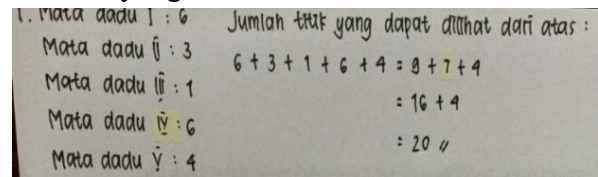 1. Mata dadu I : 6
Mata dadu II : 3
Mata dadu III : 1
Mata dadu IV : 6
Mata dadu V : 4
Jumlah titik yang dapat dilihat dari atas :
6 + 3 + 1 + 6 + 4 = 9 + 7 + 4
= 16 + 4
= 20 //